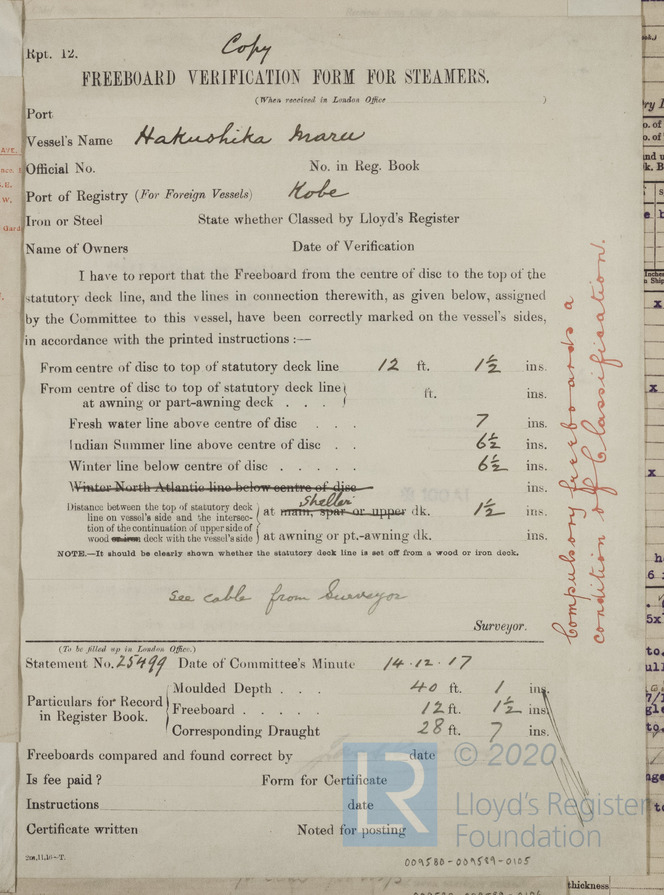 Copy
Rpt. 12.
FREEBOARD VERIFICATION FORM FOR STEAMERS.
(When received in London Office )
Port
Vessel's Name Hakushika Maru
Official No. No. in Reg. Book
Port of Registry (For Foreign Vessels) Kobe
Iron or Steel State whether Classed by Lloyd's Register
Name of Owners Date of Verification
I have to report that the Freeboard from the centre of disc to the top of the
statutory deck line, and the lines in connection therewith, as given below, assigned
by the Committee to this vessel, have been correctly marked on the vessel's sides,
in accordance with the printed instructions :—
From centre of disc to top of statutory deck line 12 ft. 1½ ins.
From centre of disc to top of statutory deck line
at awning or part-awning deck . . . ft. ins.
Fresh water line above centre of disc . . . 7 ins.
Indian Summer line above centre of disc . . 6½ ins.
Winter line below centre of disc . . . . . 6½ ins.
Winter North Atlantic line below centre of disc ins.
Shelter
Distance between the top of statutory deck
line on vessel's side and the intersec- at main, spar or upper dk. 1½ ins.
tion of the continuation of upper side of
wood or iron deck with the vessel's side at awning or pt.-awning dk. ins.
NOTE.—It should be clearly shown whether the statutory deck line is set off from a wood or iron deck.
see cable from Surveyor
Surveyor.
Compulsory freeboards a
condition of Classification.
(To be filled up in London Office.)
Statement No. 25499 Date of Committee's Minute 14.12.17
Particulars for Record
in Register Book.
Moulded Depth . . . 40 ft. 1 ins.
Freeboard . . . . . 12 ft. 1½ ins.
Corresponding Draught 28 ft. 7 ins.
Freeboards compared and found correct by date
Is fee paid ? Form for Certificate
Instructions date
Certificate written Noted for posting
2m,11,16—T.
LR
© 2020
Lloyd's Register
Foundation
009580-009589-0105
thickness